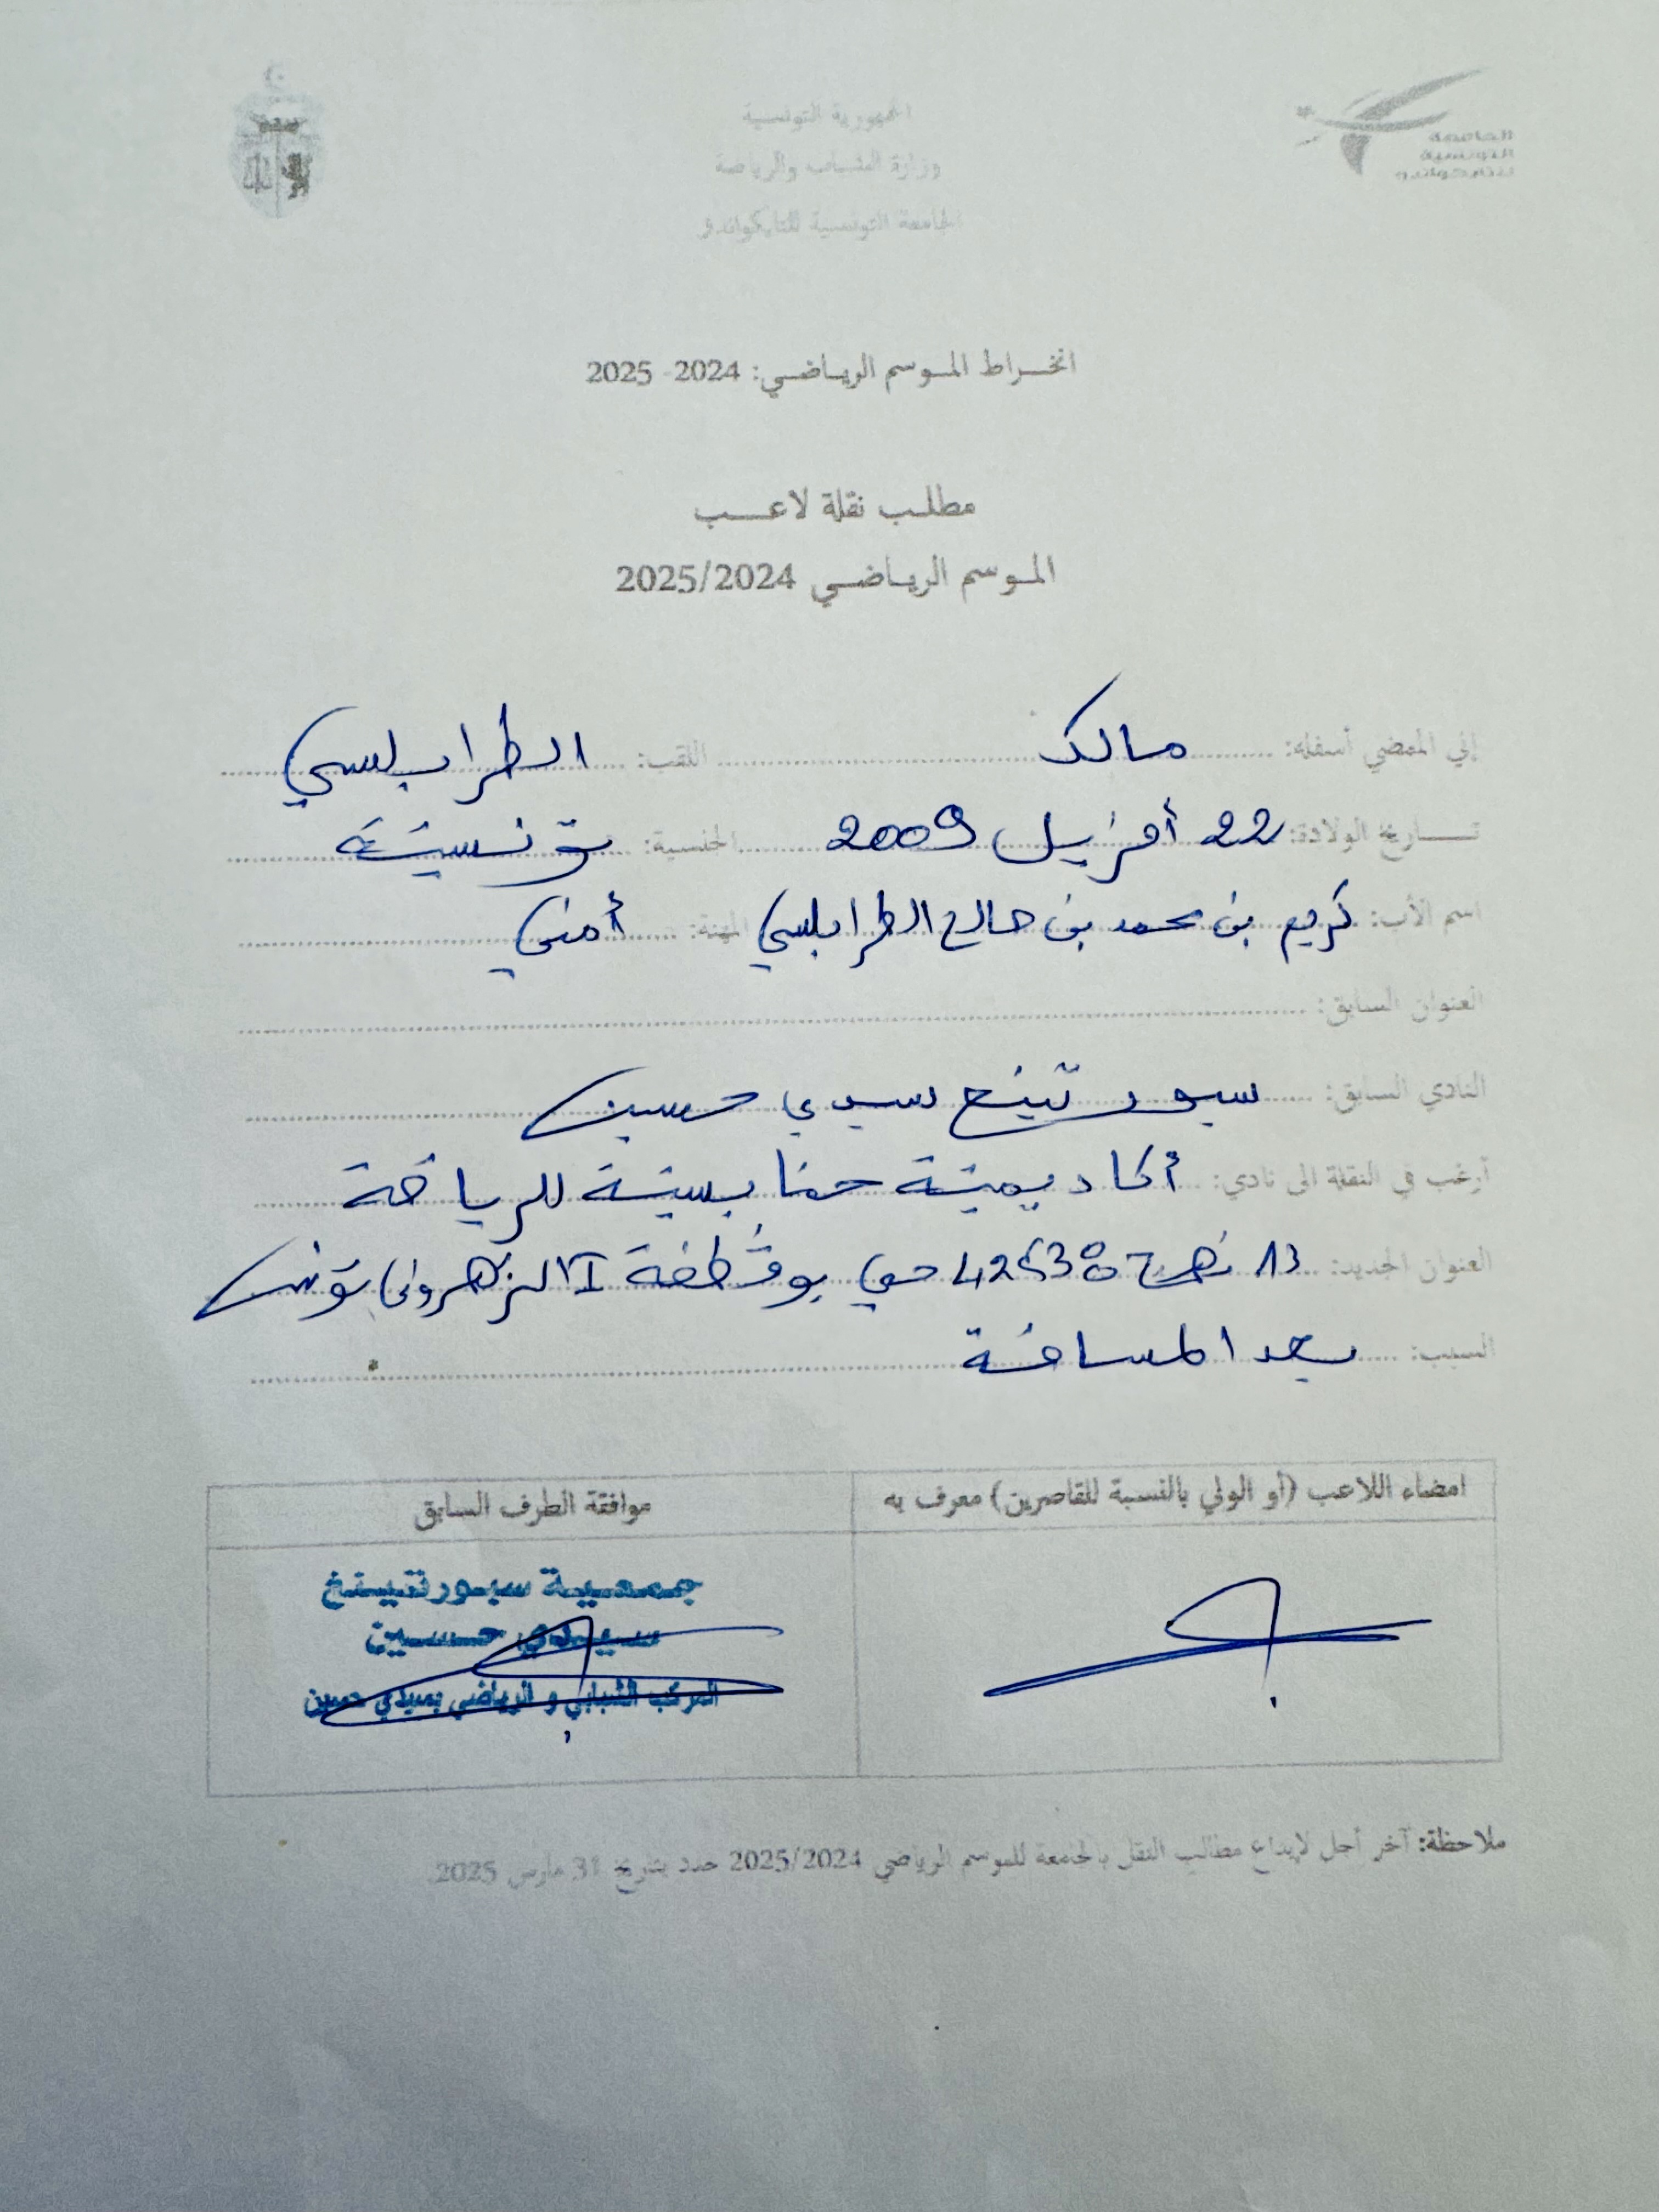 الجمهورية التونسية
وزارة الشباب والرياضة
الجامعة التونسية للتايكواندو
الجامعة
التونسية
للتايكواندو
انخراط الموسم الرياضي: 2024- 2025
مطلب نقلة لاعب
الموسم الرياضي 2025/2024
إني الممضي أسفله: مالك اللقب: الطرابلسي
تاريخ الولادة: 22 أفريل 2009 الجنسية: تونسية
اسم الأب: كريم بن محمد بن صالح الطرابلسي المهنة: أمني
العنوان السابق:
النادي السابق: سبورتينغ سيدي حسين
أرغب في النقلة الى نادي: أكاديمية حنابسية للرياضة
العنوان الجديد: 13 نهج 42538 حي بوقطفة II الزهروني تونس
السبب: بعد المسافة
امضاء اللاعب (أو الولي بالنسبة للقاصرين) معرف به
موافقة الطرف السابق
جمعية سبورتينغ
سيدي حسين
المركب الشبابي و الرياضي بسيدي حسين
ملاحظة: آخر أجل لإيداع مطالب النقل بالجامعة للموسم الرياضي 2025/2024 حدد بتاريخ 31 مارس 2025.